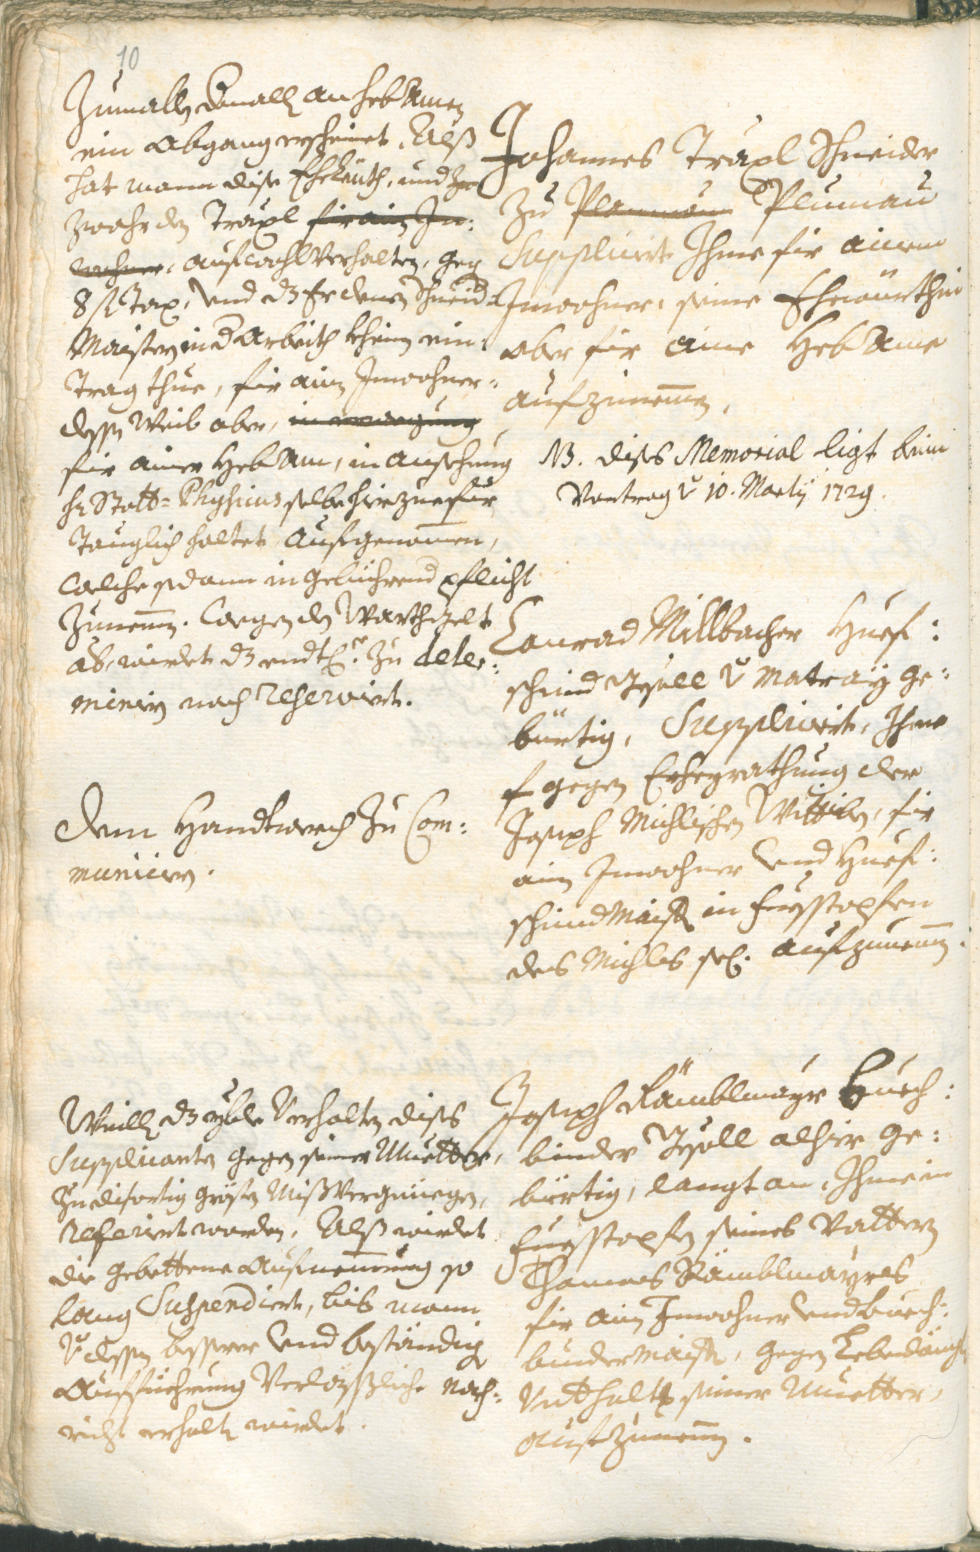 10
Zumalln damall an heb Amen
ein Abgang erscheinet, Alß
hat mann dise Eheleuth, und
zwahr den Träxl für ain In:
wohner, auf wohl Verhalten, geg
8 fl Tax, Und dz Er denen Schneid
Maistern in d Arbeith kheinen ein:
trag thue, für ain Inwohner,
dessen Weib aber, in erwegung
für ainer Heb Am, in ansehung
H: Statt-Physicus selbe hierzue für
tauglich haltet aufgenommen,
welche sodann in gebührend pflicht
Zunemmen. Wegen des Warthgelt
ab, wirdet dz endtl: zu deter:
minirn noch reservirt.
Johannes Träxl Schneider
zu Plumau
Supplicirt Ihme für ainem
Inwohner, seine Ehewürthin
aber für aine Heb Ame
aufzunemmen,
NB. dises Memorial ligt beim
Vortrag v 10. Marty 1729.
Dem Handtwerch zu Com:
municirn.
Conrad Millbacher Huef:
schmid Gsell v Matray ge:
bürtig, Supplicirt, Ihme
gegen Ehegrathung der
Joseph Michlischen Wittib, für
ain Inwohner und Huef:
schmid Maister in fuesstapfen
des Michls sel: aufzunemmen.
Weilln dz yble Verhalten dises
Supplicanten gegen seiner Muetter,
zu disortig grösten Mißvergnüegen,
referirt worden, Alß wirdet
die gebettene Aufnemmung so
lang Suspendirt, bis mann
v dessen besserer und beständig
Aufführung Verläßliche nach:
richt erhalten wirdet.
Joseph Rämblmayr Buech:
binder Gsell alhier ge:
bürtig, langt an, Ihme in
fuesstapfen seines Vattern
Thomas Rämblmayrs
für ain Inwohner und buech:
binder Maister, gegen Lebenslängl
Unthalt seiner Muetter,
aufzunemmen.